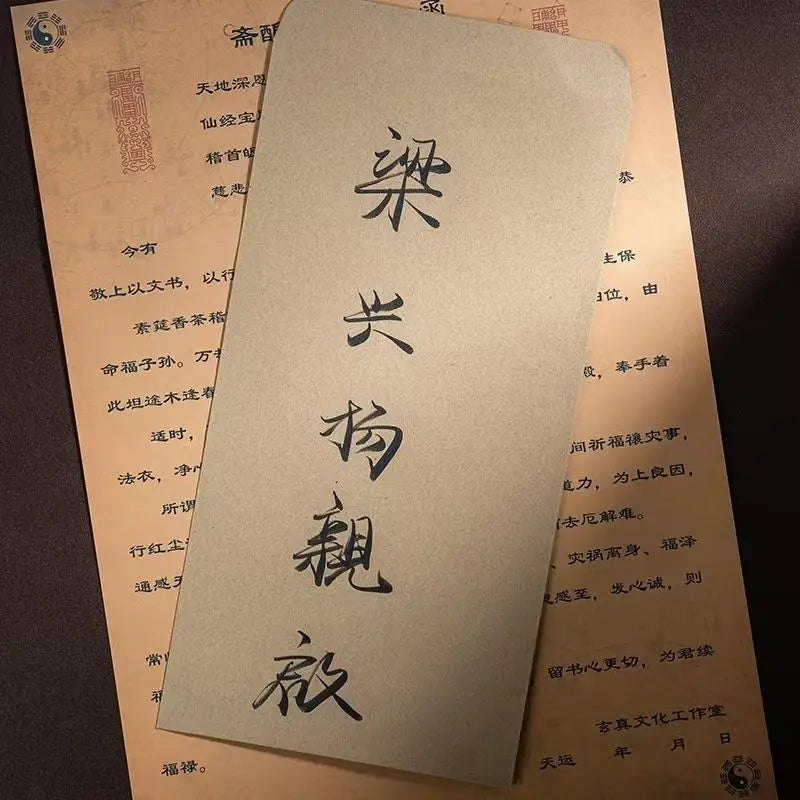 梁兴扬親啟
斋
天地深恩
仙经宝
稽首皈
慈悲 恭
今有 生保
敬上以文书，以行 位，由
素筵香茶稽
命福子孙。万 殿，奉手着
此坦途木逢春
适时， 间祈福禳灾事，
法衣，净心 道力，为上良因，
所谓 去厄解难。
行红尘 、灾祸离身、福泽
通感 感至，发心诚，则
常 留书心更切，为君续
福
玄真文化工作室
福禄。 天运 年 月 日